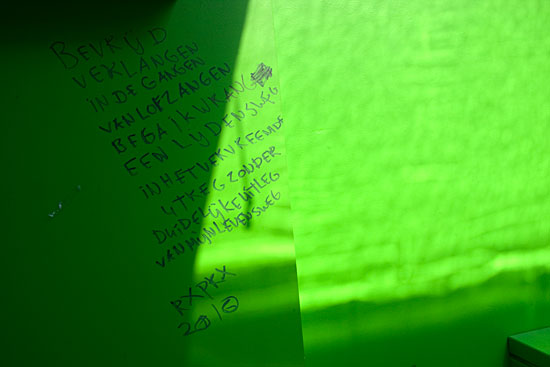 BEVRIJD
VERLANGEN
IN DE GANGEN
VAN LOFZANGEN
BEGA IK
EEN LIJDENSWEG
IN HET VERVREEMDE
ZONDER
DUIDELIJKE UITLEG
VAN MIJN LEVENSWEG
RXPKX
2010